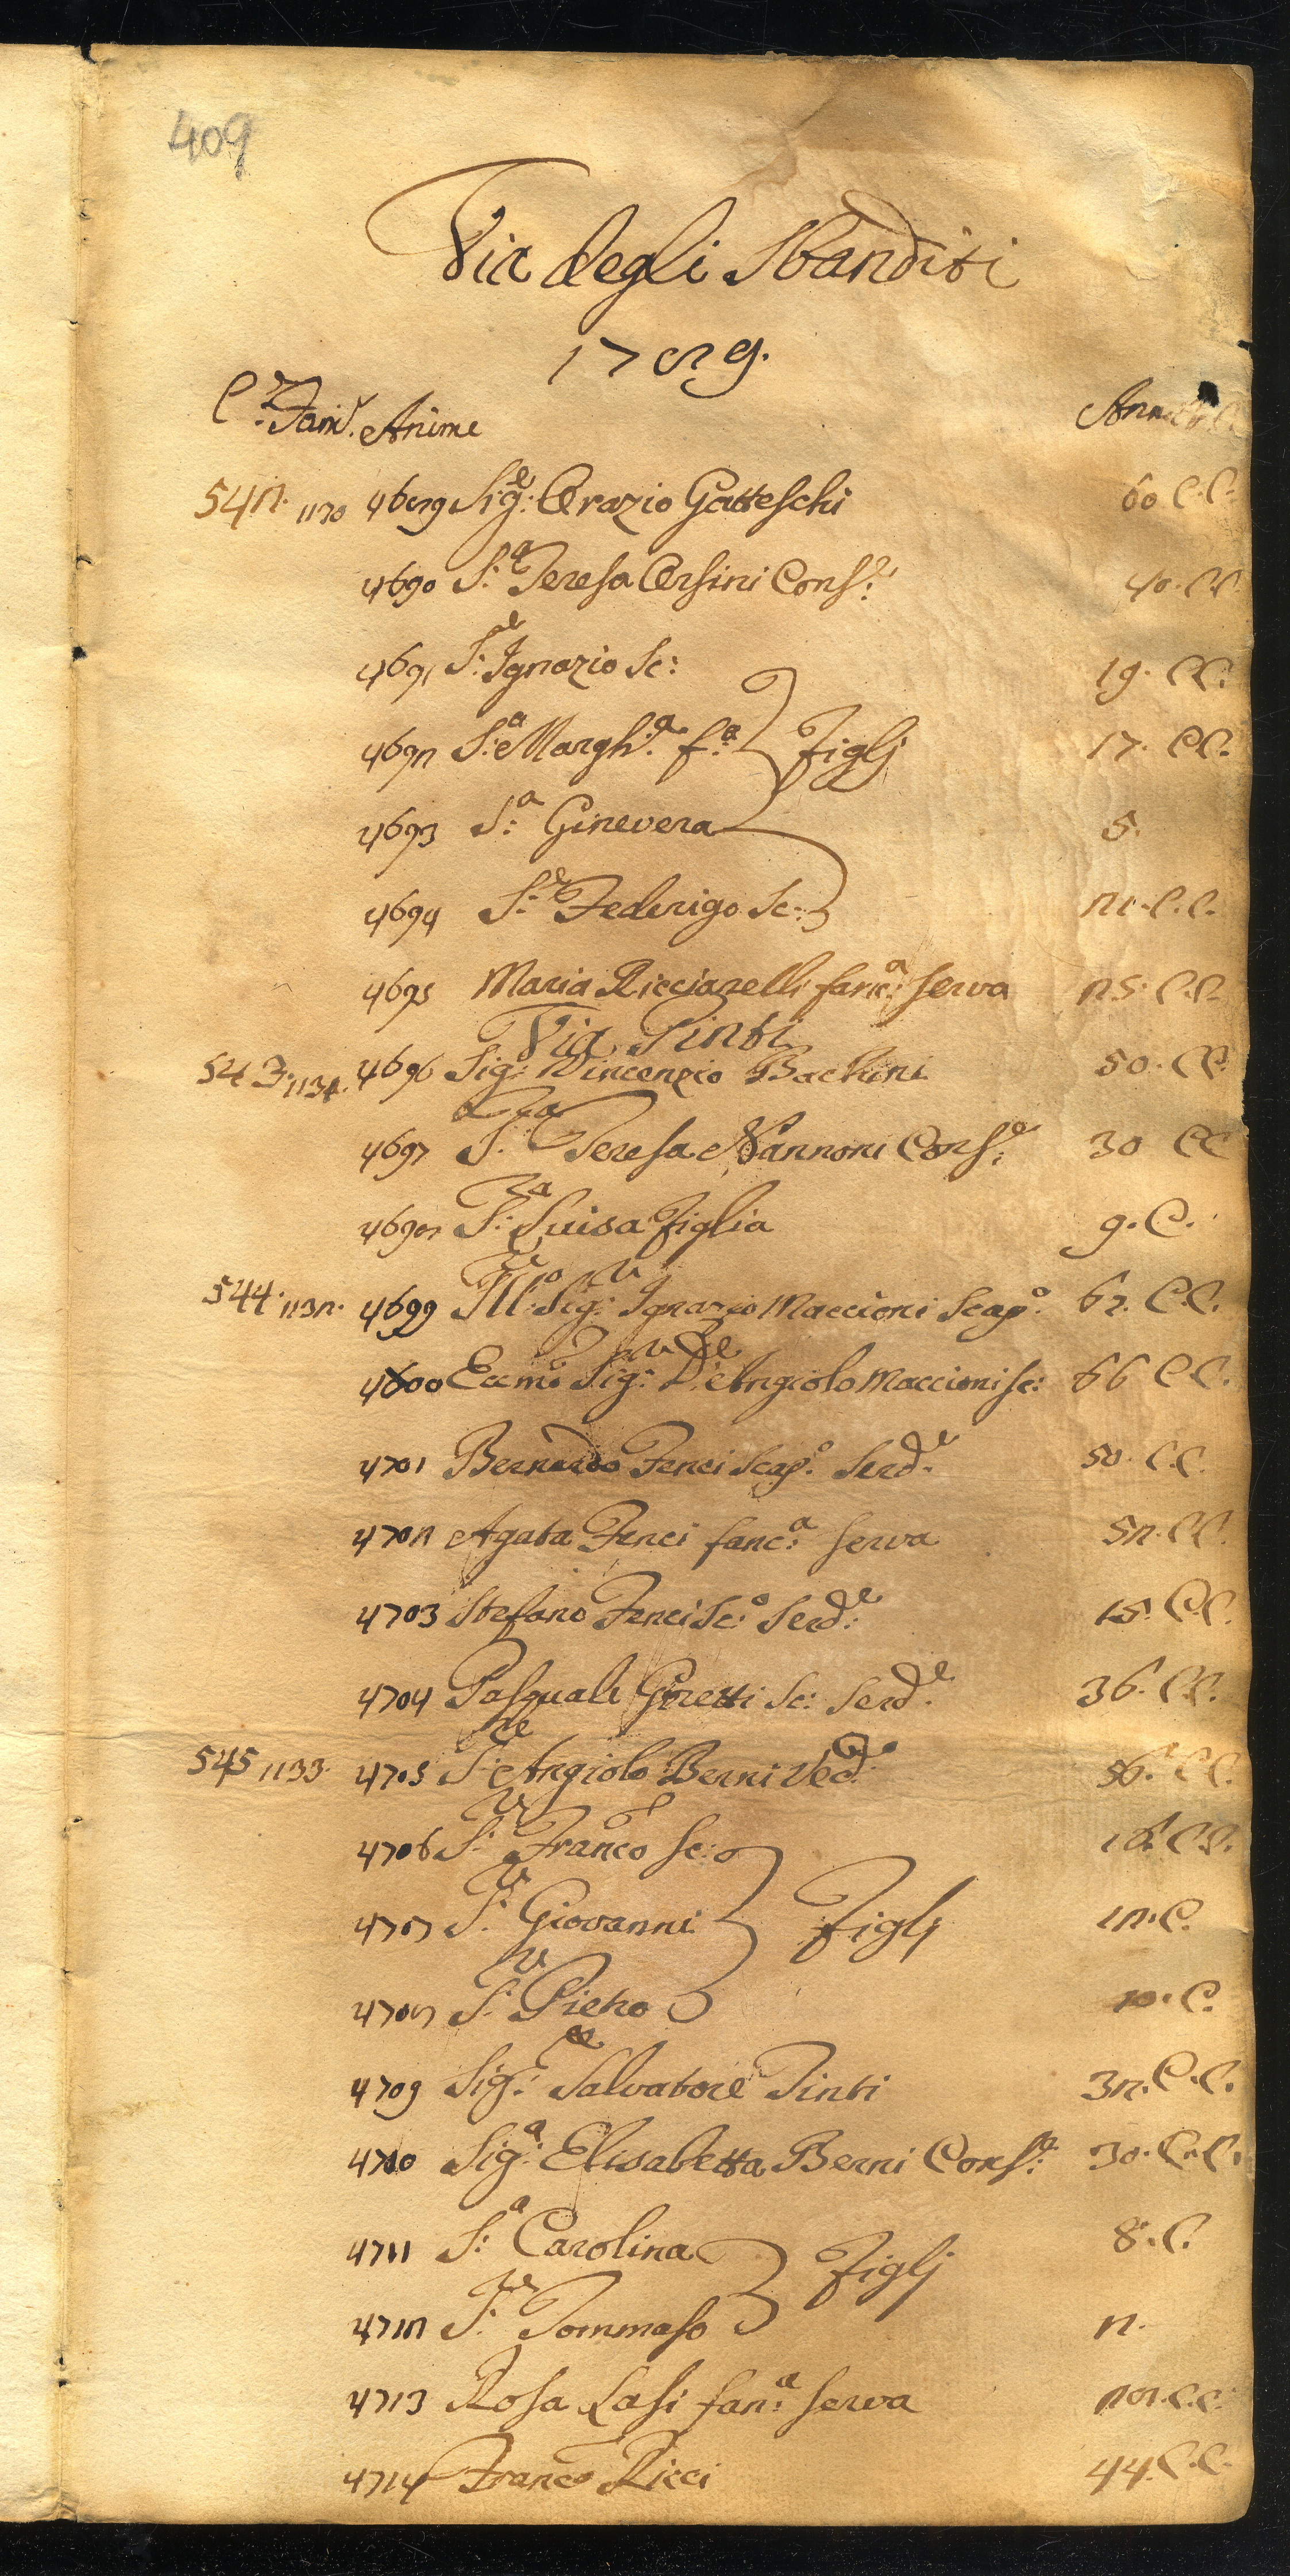 409
Via degli Sbanditi
1789.
C.e Fam.e Anime Anni
542. 1130 4689 Sig.e Orazio Gatteschi 60 C.C.
4690 S.a Teresa Orsini Cons.e 40. C.C.
4691 S.e Ignazio Sc: 19. C.C.
4692 S.a Margh.a f.a Figlj 17. C.C.
4693 S.a Ginevera 5.
4694 S.e Federigo Sc: 21. C.C.
4695 Maria Ricciarelli fanc.a Serva 25. C.C.
Via Pinti
543. 1131. 4696 Sig.e Vincenzio Bachini 50. C.C.
4697 S.a Teresa Nannoni Cons.e 30 C C
4698 S.a Luisa Figlia 9. C.
544. 1132. 4699 Ill.o Sig.e Ignazio Maccioni Scap.o 67. C.C.
4700 Eccmo Sig.e D.e Angiolo Maccioni Sc: 66 C.C.
4701 Bernardo Fenci Scap.o Serd.e 50. C.C.
4702 Agata Fenci fanc.a Serva 52. C.C.
4703 Stefano Fenci Sc.o Serd.e 15. C.C.
4704 Pasquale Ginetti Sc: Serd.e 36. C.C.
545 1133. 4705 S.e Angiolo Berni Ved.o 56. C.C.
4706 S.e Franco Sc: 16. C.C.
4707 S.e Giovanni Figlj 12. C.
4708 S.e Pietro 10. C.
4709 Sig.e Salvatore Pinti 32. C.C.
4710 Sig.a Elisabetta Berni Cons.e 30. C.C.
4711 S.a Carolina Figlj 8. C.
4712 S.e Tommaso 2.
4713 Rosa Lasi fan.a Serva 28. C.C.
4714 Franco Ricci 44. C.C.